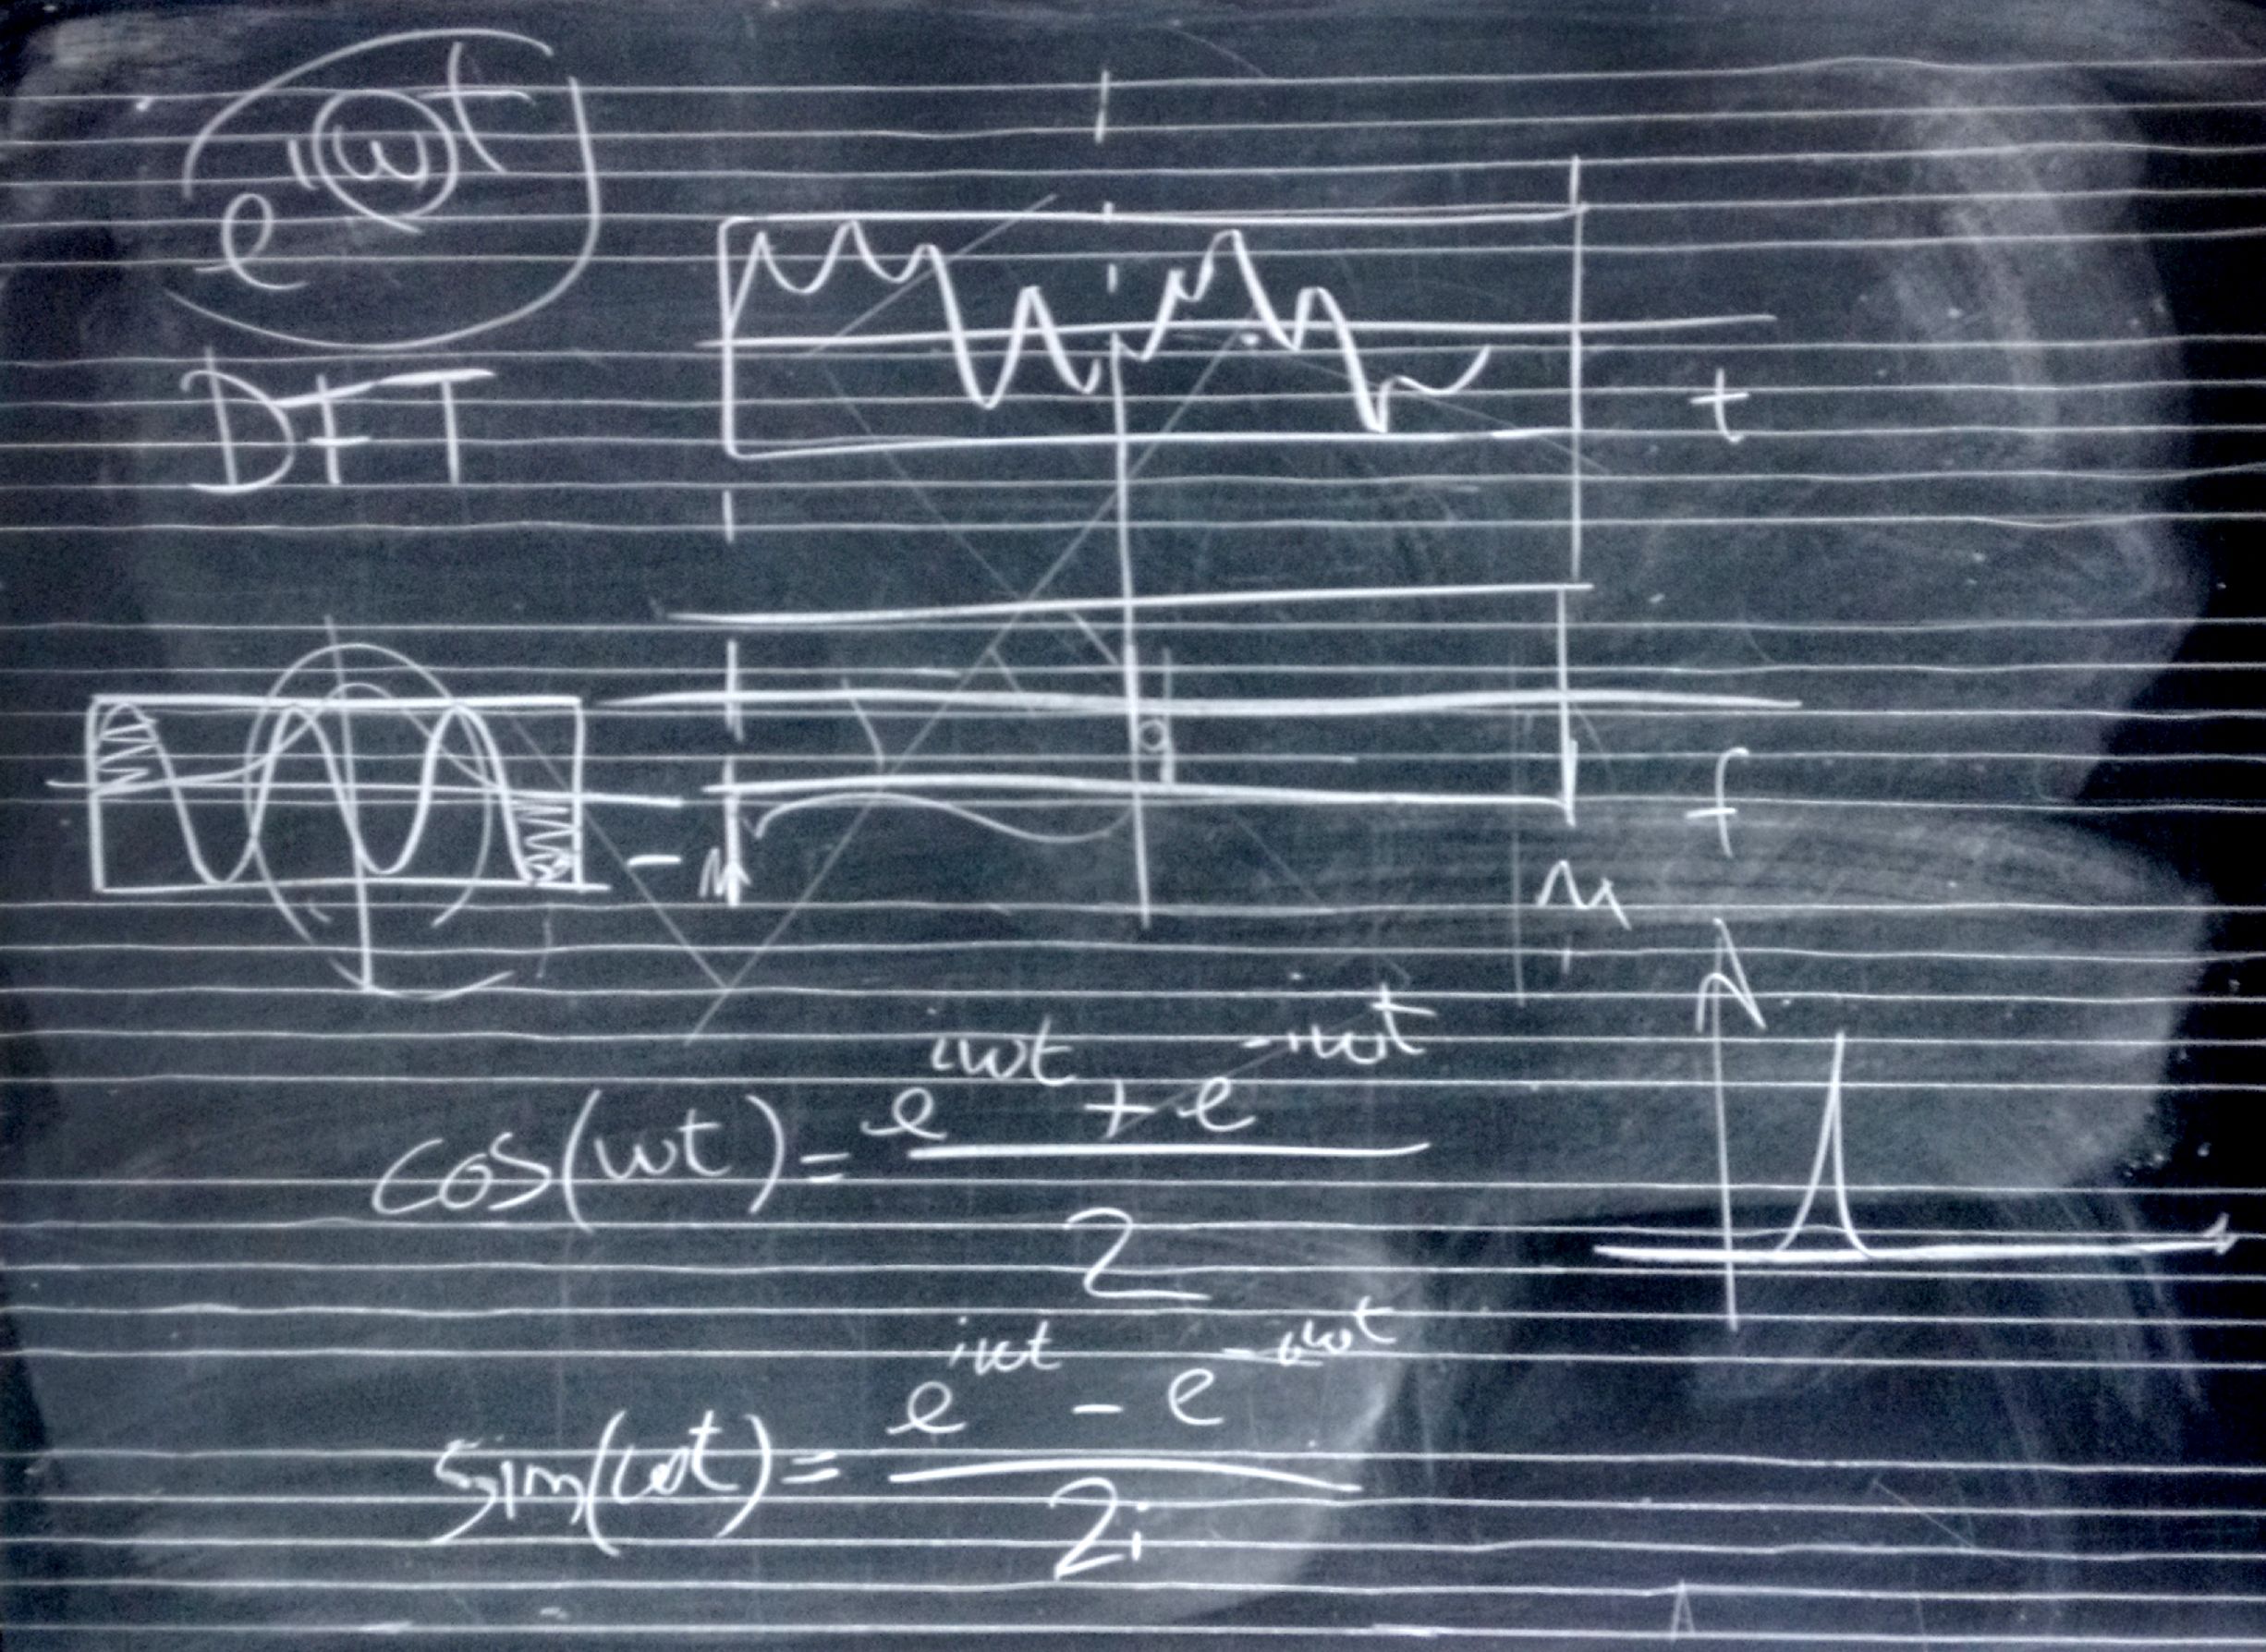 e^iωt
DFT
t
f
cos(ωt) = (e^iωt + e^-iωt) / 2
sin(ωt) = (e^iωt - e^-iωt) / 2i